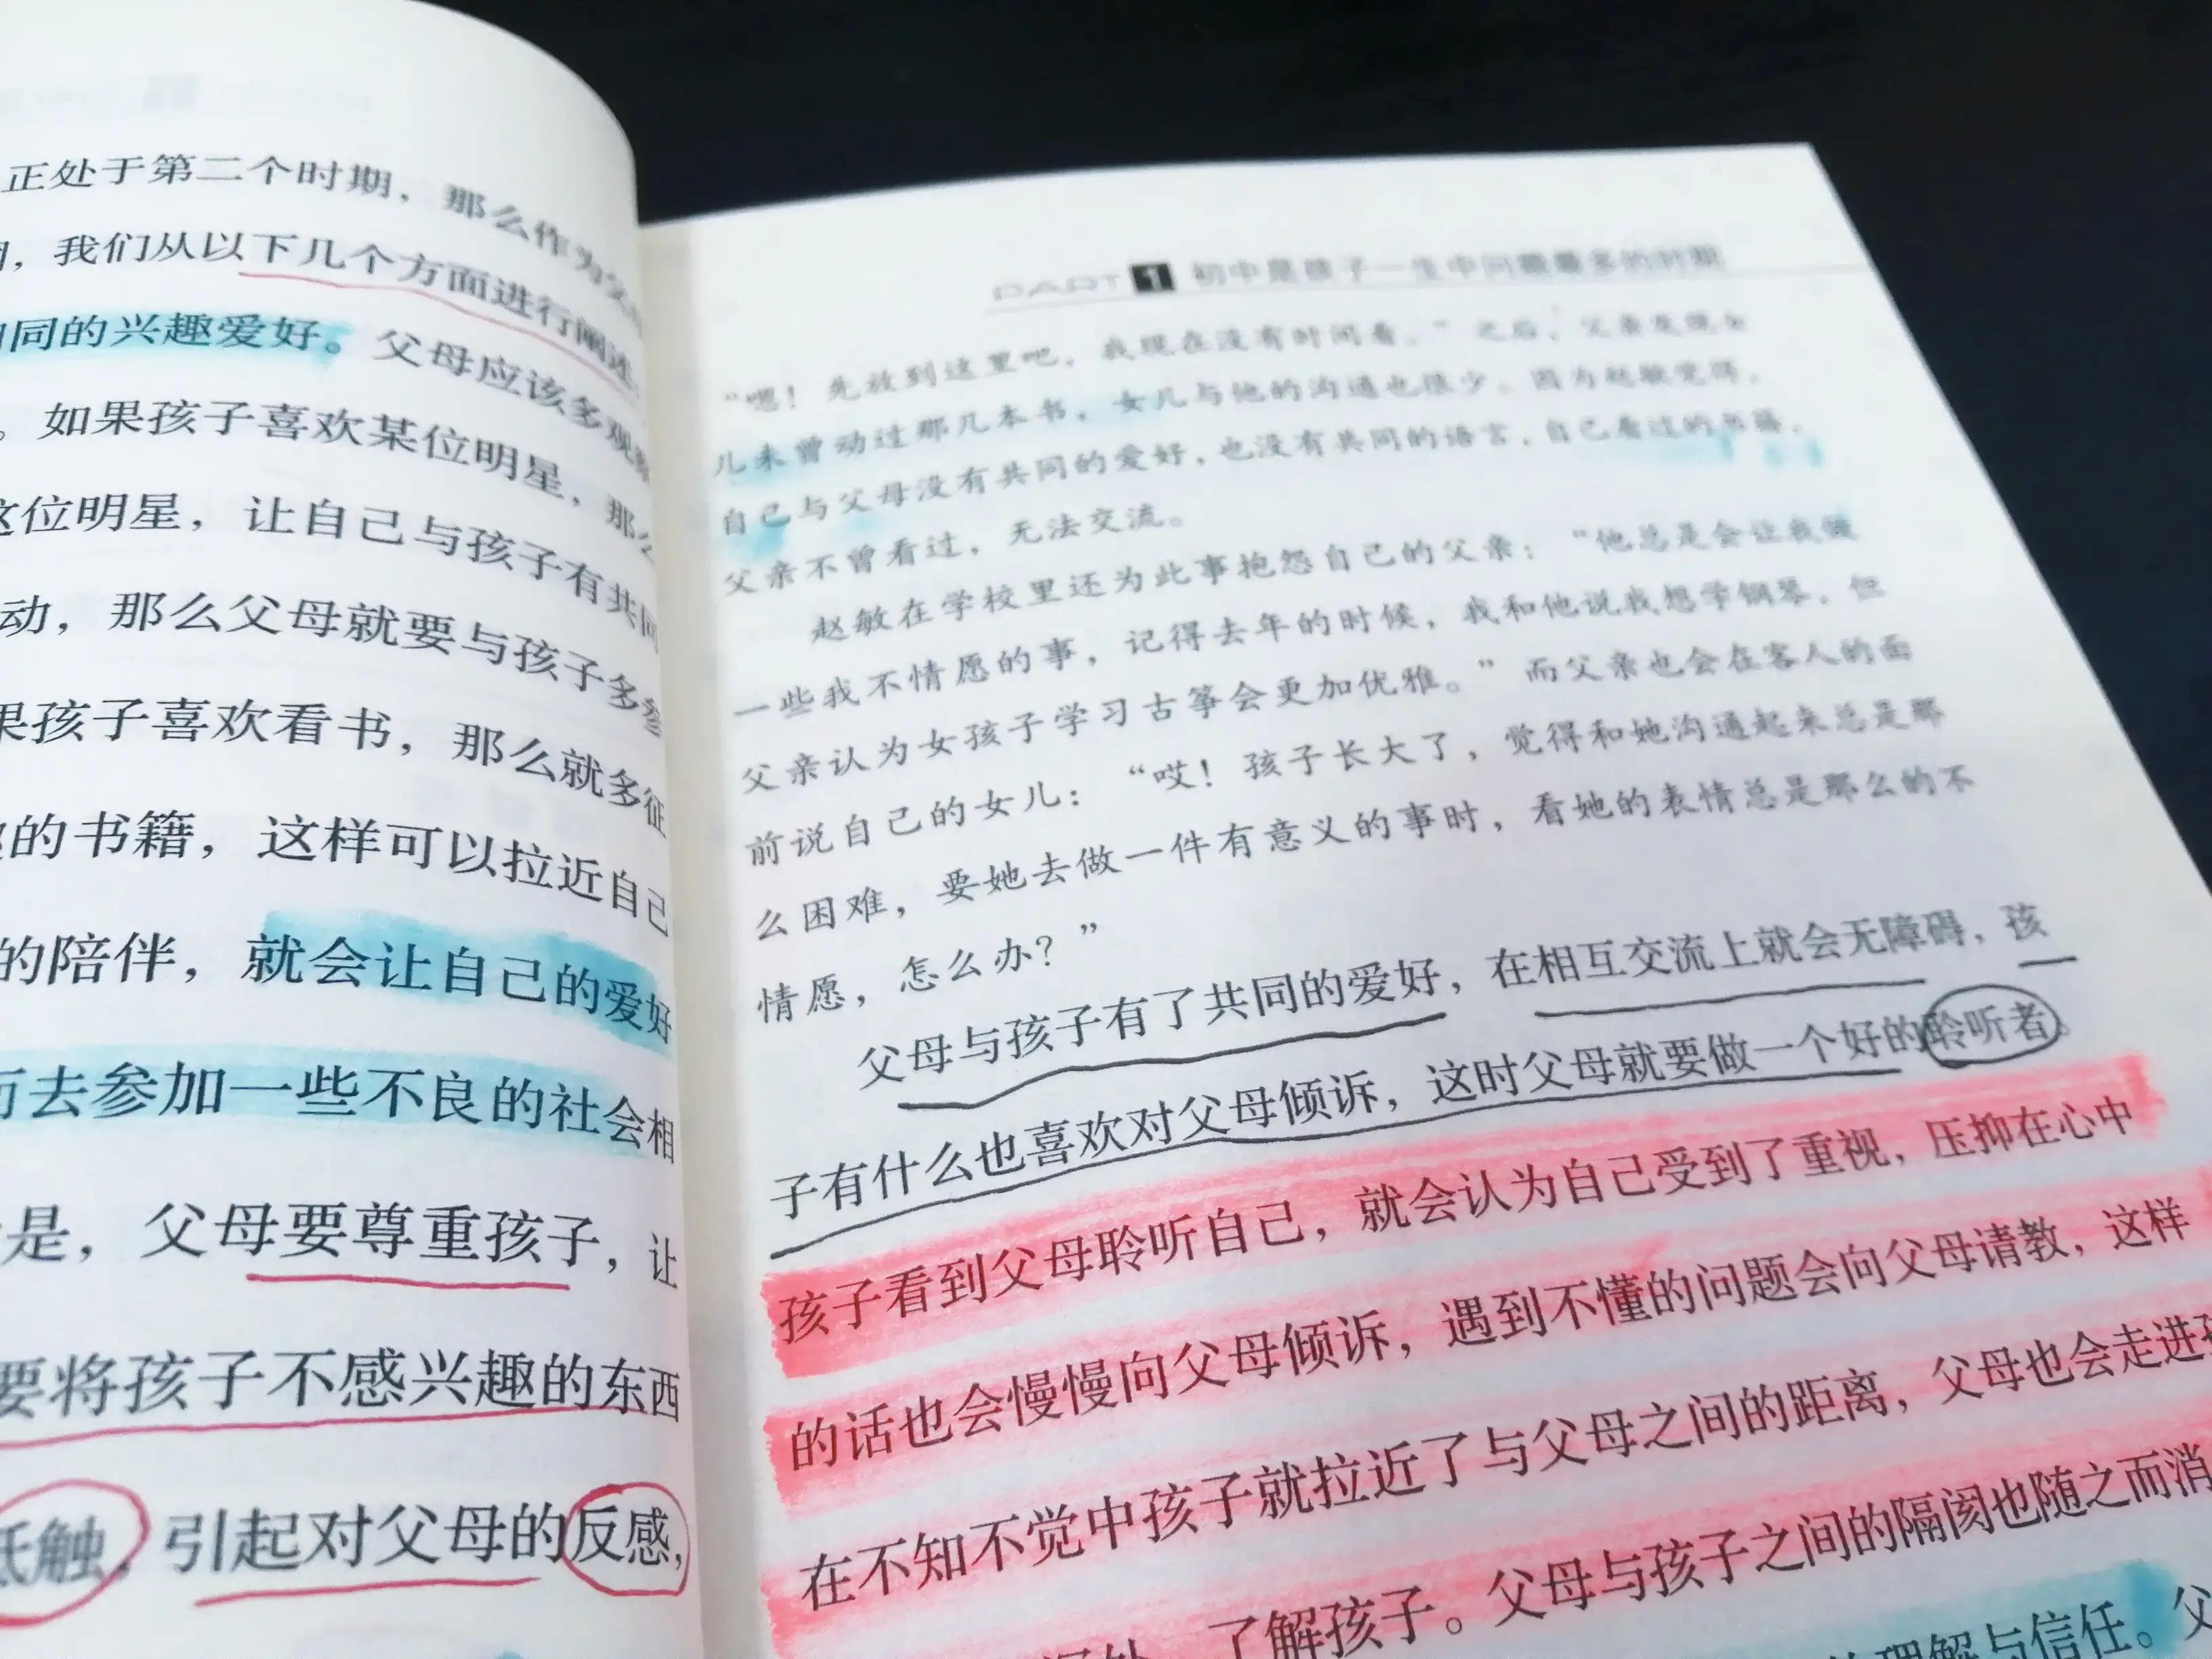 正处于第二个时期，那么作为父
，我们从以下几个方面进行阐述：
同的兴趣爱好。父母应该多观察
。如果孩子喜欢某位明星，那么
这位明星，让自己与孩子有共同
动，那么父母就要与孩子多参
果孩子喜欢看书，那么就多征
的书籍，这样可以拉近自己
的陪伴，就会让自己的爱好
而去参加一些不良的社会相
是，父母要尊重孩子，让
要将孩子不感兴趣的东西
抵触，引起对父母的反感，
PART 1 初中是孩子一生中问题最多的时期
“嗯！先放到这里吧，我现在没有时间看。”之后，父亲发现女
儿未曾动过那几本书，女儿与他的沟通也很少。因为赵敏觉得，
自己与父母没有共同的爱好，也没有共同的语言，自己看过的书籍，
父亲不曾看过，无法交流。
赵敏在学校里还为此事抱怨自己的父亲：“他总是会让我做
一些我不情愿的事，记得去年的时候，我和他说我想学钢琴，但
父亲认为女孩子学习古筝会更加优雅。”而父亲也会在客人的面
前说自己的女儿：“哎！孩子长大了，觉得和她沟通起来总是那
么困难，要她去做一件有意义的事时，看她的表情总是那么的不
情愿，怎么办？”
父母与孩子有了共同的爱好，在相互交流上就会无障碍，孩
子有什么也喜欢对父母倾诉，这时父母就要做一个好的聆听者。
孩子看到父母聆听自己，就会认为自己受到了重视，压抑在心中
的话也会慢慢向父母倾诉，遇到不懂的问题会向父母请教，这样
在不知不觉中孩子就拉近了与父母之间的距离，父母也会走进孩
深处，了解孩子。父母与孩子之间的隔阂也随之而消
的理解与信任。父